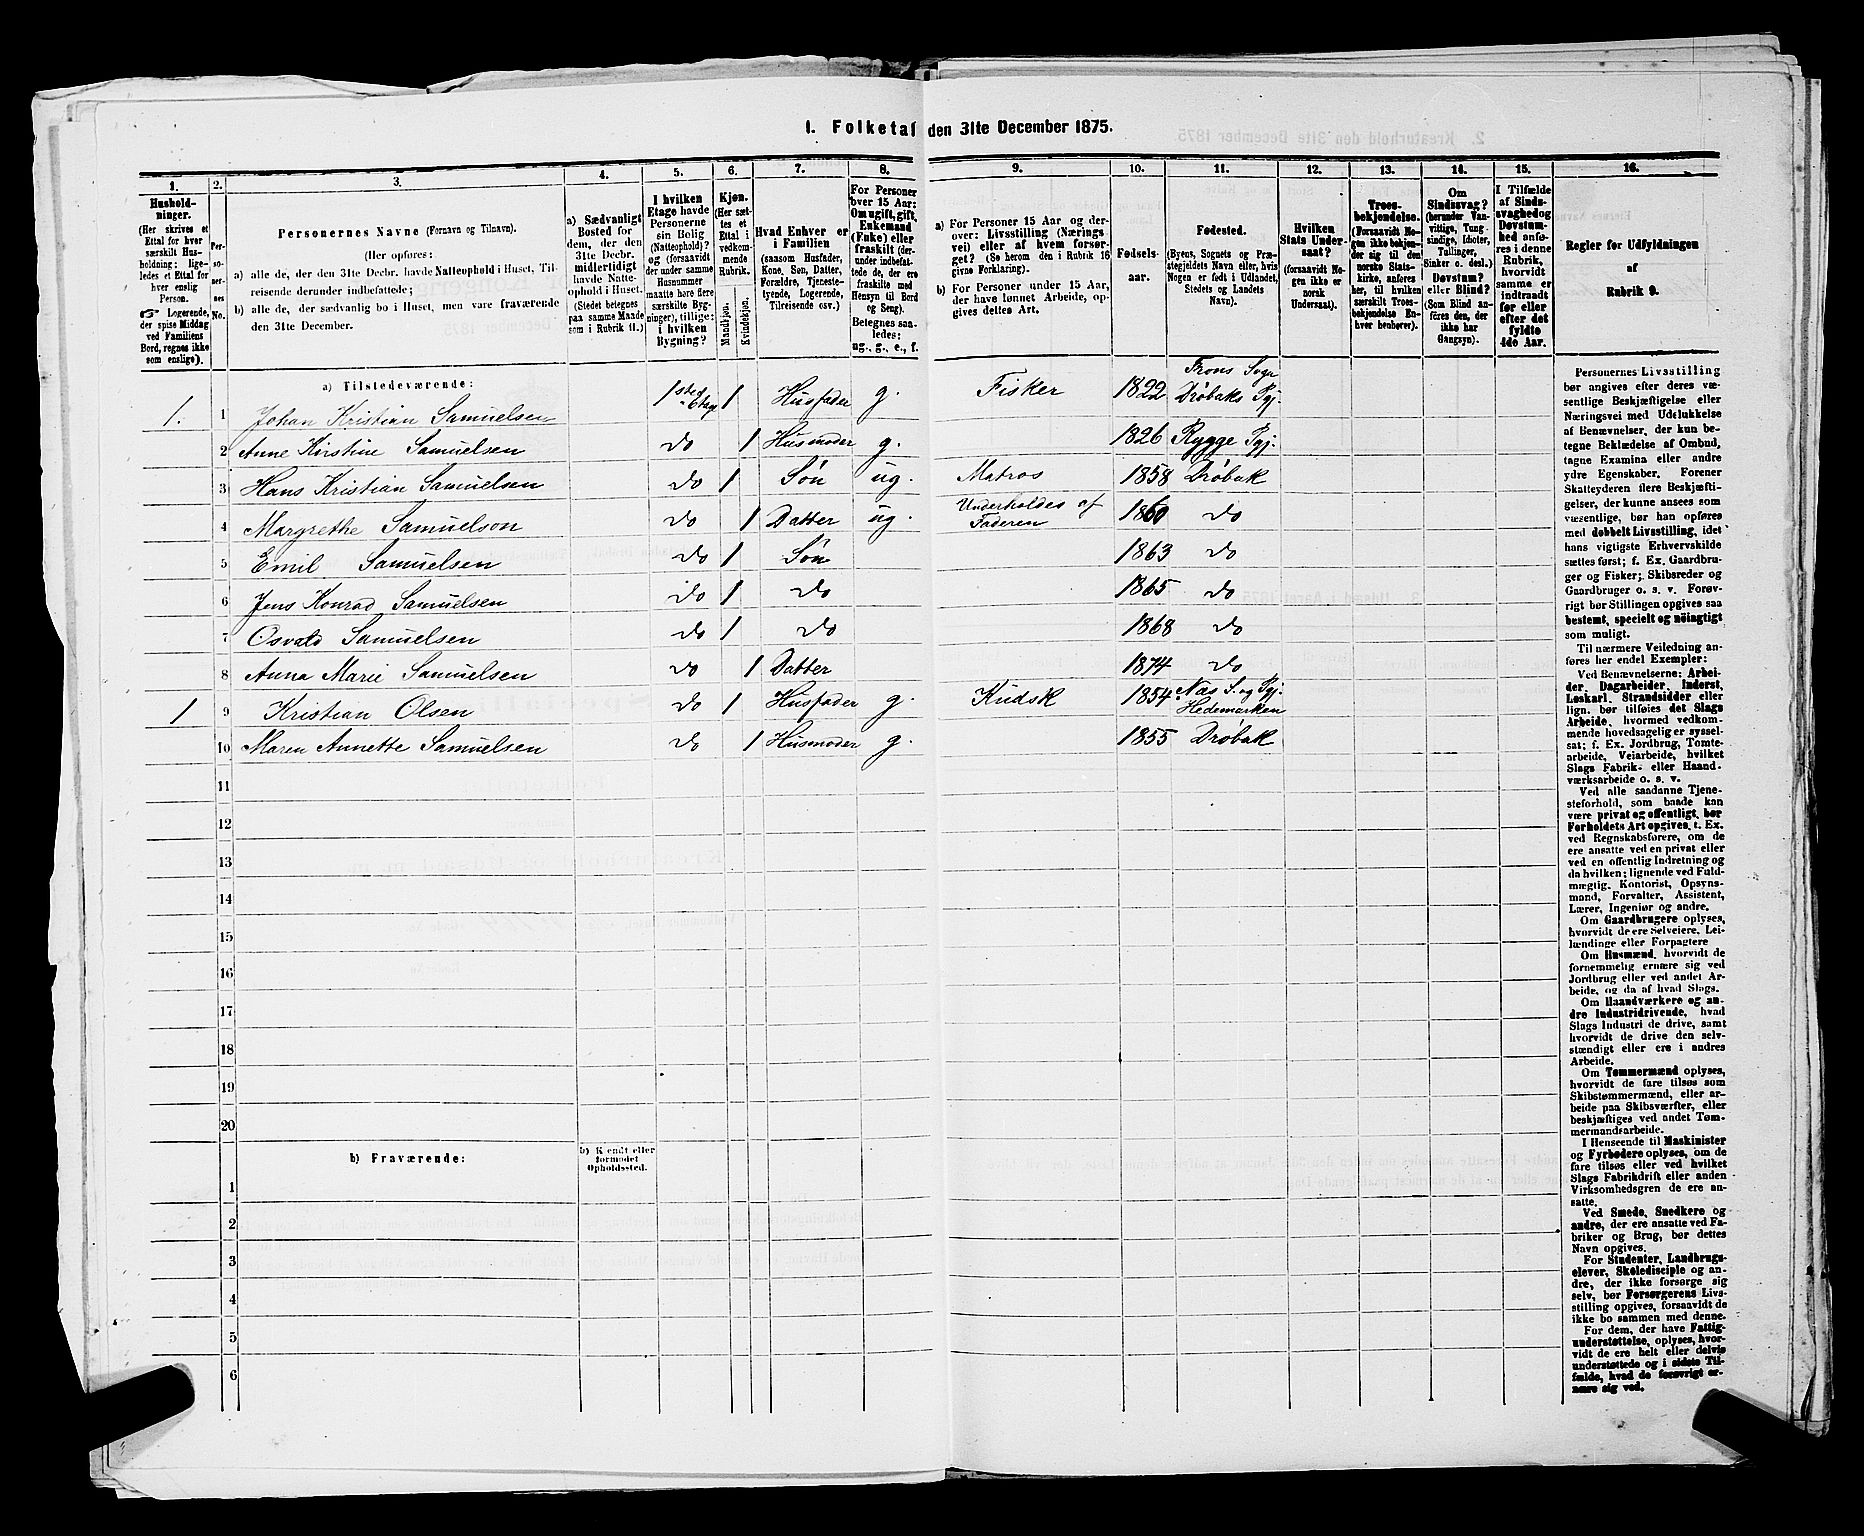 1. Folketal den 31te December 1875.
1.
2.
3.
4.
5.
6.
7.
8.
9.
10.
11.
12.
13.
14.
15.
16.
Hushold-
ninger.
(Her skrives et
Ettal for hver
særskilt Hus-
holdning; lige-
ledes et Ettal for
hver enslig
Person.
☞ Logerende,
der spise Middag
ved Familiens
Bord, regnes ikke
som enslige).
Per-
so-
ner-
nes
No.
Personernes Navne (Fornavn og Tilnavn).
(Her opføres:
a) alle de, der den 31te Decbr. havde Natteophold i Huset, Til-
reisende derunder indbefattede;
b) alle de, der sædvanlig bo i Huset, men vare fraværende
den 31te December.
a) Sædvanligt
Bosted for
dem, der den
31te Decbr.
midlertidigt
havde Natte-
ophold i Huset.
(Stedet betegnes
paa samme Maade
som i Rubrik 11.)
I hvilken
Etage havde
Personerne
sin Bolig
(Natteophold)?
og (forsaavidt
der under samme
Husnummer
maatte høre flere
særskilte Byg-
ninger), tillige:
i hvilken
Bygning?
Kjøn.
(Her sæt-
tes et
Ettal i
vedkom-
mende
Rubrik.
Mandkjøn.
Kvindekjøn.
Hvad Enhver er
i Familien
(saasom Husfader,
Kone, Søn, Datter,
Forældre, Tjeneste-
tyende, Logerende,
Tilreisende osv.)
For Personer
over 15 Aar:
Om ugift, gift,
Enkemand
(Enke) eller
fraskilt (der-
under indbefat-
tede de, der ere
fraskilte med
Hensyn til Bord
og Seng).
Betegnes saa-
ledes:
ug., g., e., f.
a) For Personer 15 Aar og der-
over: Livsstilling (Nærings-
vei) eller af hvem forsør-
get? (Se herom den i Rubrik 16
givne Forklaring).
b) For Personer under 15 Aar,
der have lønnet Arbeide, op-
gives dettes Art.
Fødsels-
aar.
Fødested.
(Byens, Sognets og Præ-
stegjeldets Navn eller, hvis
Nogen er født i Udlandet,
Stedets og Landets
Navn).
Hvilken
Stats Under-
saat?
(forsaavidt No-
gen ikke er
norsk
Undersaat).
Troes-
bekjendelse.
(Forsaavidt No-
gen ikke bekjen-
der sig til den
norske Stats-
kirke, anføres
her, til hvilken
særskilt Troes-
bekjendelse En-
hver henhører).
Om
Sindssvag?
(herunder Van-
vittige, Tung-
sindige, Idioter,
Tullinger,
Sinker o. desl.)
Døvstum?
eller Blind?
(Som Blind an-
føres den, der
ikke har
Gangsyn).
I Tilfælde
af Sinds-
svaghed og
Døvstum-
hed anfø-
res i denne
Rubrik,
hvorvidt
samme er
indtraadt
før eller
efter det
fyldte
4de Aar.
Regler for Udfyldningen
af
Rubrik 9.
a) Tilstedeværende:
1. 1 Johan Kristian Samuelsen 1sted Etage 1 Husfader g. Fisker 1822 Frons Sogn Drøbaks Pgj.
2 Anne Kirstine Samuelsen do 1 Husmoder g. 1826 Rygge Pgj.
3 Hans Kristian Samuelsen do 1 Søn ug. Matros 1858 Drøbak
4 Margrethe Samuelson do 1 Datter ug. Underholdes af Faderen 1860 do
5 Emil Samuelsen do 1 Søn 1863 do
6 Jens Konrad Samuelsen do 1 do 1865 do
7 Osvald Samuelsen do 1 do 1868 do
8 Anna Marie Samuelsen do 1 Datter 1874 do
1 9 Kristian Olsen do 1 Husfader g. Kudsk 1854 Næs S. og Pgj. Hedemarken
10 Maren Annette Samuelsen do 1 Husmoder g. 1855 Drøbak
11
12
13
14
15
16
17
18
19
20
b) Fraværende:
b) Kjendt eller
formodet
Opholdssted.
1
2
3
4
5
6
Personernes Livsstilling
bør angives efter deres væ-
sentlige Beskjæftigelse eller
Næringsvei med Udelukkelse
af Benævnelser, der kun be-
tegne Beklædelse af Ombud,
tagne Examina eller andre
ydre Egenskaber. Forener
Skatteyderen flere Beskjæfti-
gelser, der kunne ansees som
væsentlige, bør han opføres
med dobbelt Livsstilling, idet
hans vigtigste Erhvervskilde
sættes først; f. Ex. Gaardbru-
ger og Fisker; Skibsreder og
Gaardbruger o. s. v. Forøv-
rigt bør Stillingen opgives saa
bestemt, specielt og nöiagtigt
som muligt.
Til nærmere Veiledning an-
føres her endel Exempler:
Ved Benævnelserne: Arbei-
der, Dagarbeider, Inderst,
Løskarl, Strandsidder eller
lign. bør tilføies det Slags
Arbeide, hvormed vedkom-
mende hovedsagelig er syssel-
sat; f. Ex. Jordbrug, Tomte-
arbeide, Veiarbeide, hvilket
Slags Fabrik- eller Haand-
værksarbeide o. s. v.
Ved alle saadanne Tjene-
steforhold, som baade kan
være privat og offentligt, bør
Forholdets Art opgives, t. Ex.
ved Regnskabsførere, om de
ere ansatte ved en privat eller
ved en offentlig Indretning og
da hvilken; lignende ved Fuld-
mægtig, Kontorist, Opsyns-
mand, Forvalter, Assistent,
Lærer, Ingeniør og andre.
Om Gaardbrugere oplyses,
hvorvidt de ere Selveiere, Lei-
lændinge eller Forpagtere
Om Husmænd, hvorvidt de
fornemmelig ernære sig ved
Jordbrug eller ved andet Ar-
beide, og da af hvad Slags.
Om Haandværkere og an-
dre Industridrivende, hvad
Slags Industri de drive, samt
hvorvidt de drive den selv-
stændigt eller ere i andres
Arbeide.
Om Tømmermænd oplyses,
hvorvidt de fare tilsøs som
Skibstømmermænd, eller ar-
beide paa Skibsværfter, eller
beskjæftiges ved andet Tøm-
mermandsarbeide.
I Henseende til Maskinister
og Fyrbødere oplyses, om de
fare tilsøs eller ved hvilket
Slags Fabrikdrift eller anden
Virksomhedsgren de ere an-
satte.
Ved Smede, Snedkere og
andre, der ere ansatte ved Fa-
briker og Brug, bør dettes
Navn opgives.
For Studenter, Landbrugs-
elever, Skoledisciple og an-
dre, der ikke forsørge sig
selv, bør Forsørgerens Livs-
stilling opgives, forsaavidt de
ikke bo sammen med denne.
For dem, der have Fattig-
understøttelse, oplyses, hvor-
vidt de ere helt eller delvis
understøttede og i sidste Til-
fælde, hvad de forøvrigt er-
nære sig ved.